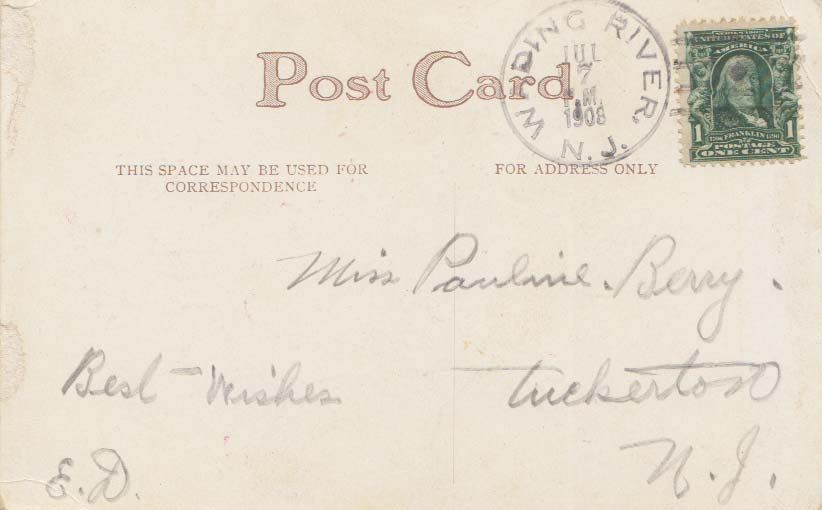 Post Card
WADING RIVER, N. J.
JUL
7
1908
SERIES 1902
UNITED STATES OF
AMERICA
1 FRANKLIN 1
POSTAGE
ONE CENT
THIS SPACE MAY BE USED FOR
CORRESPONDENCE
FOR ADDRESS ONLY
Miss Pauline Berry.
Best Wishes
E.D.
Tuckerton
N.J.